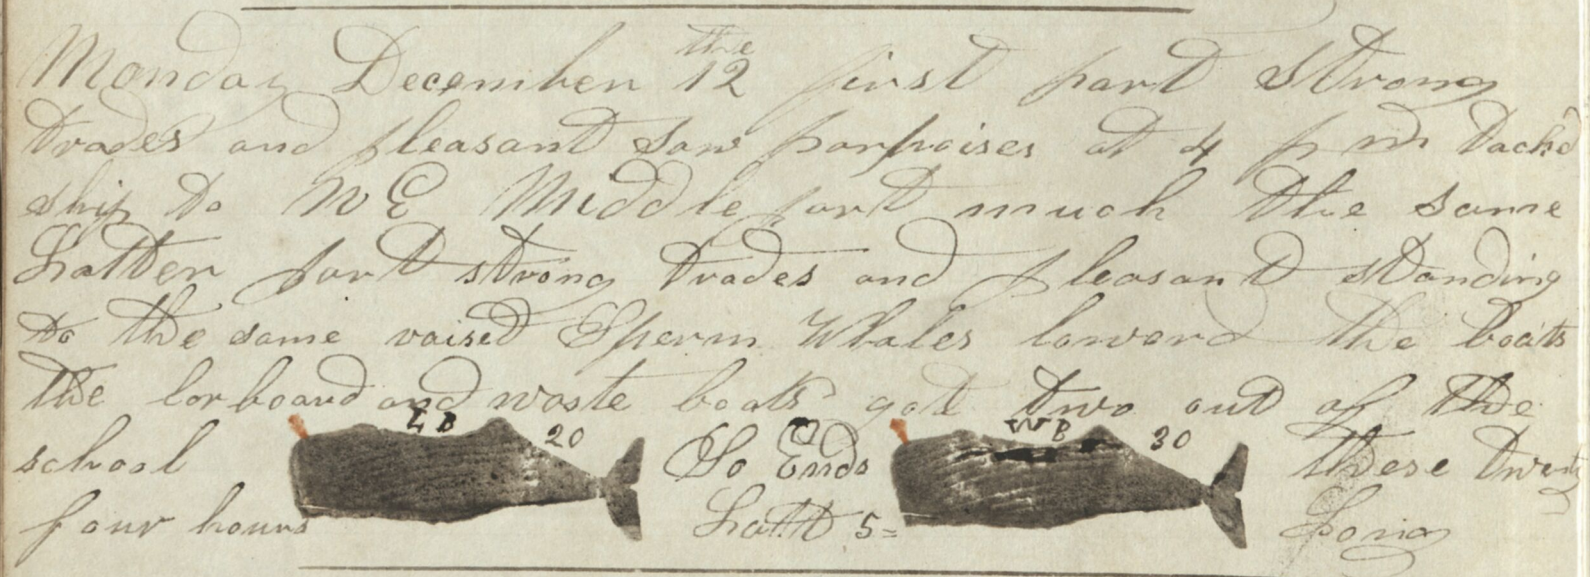 Monday December 12 the first part strong
trades and pleasant saw porpoises at 4 p m tackd
ship to N E Middle part much the same
Latter part strong trades and pleasant standing
to the same raised Sperm Whales lowerd the boats
the lorboard and waste boats got two out of the
L B W B
school 20 So Ends 30 these twenty
four hours Latt 5= Long